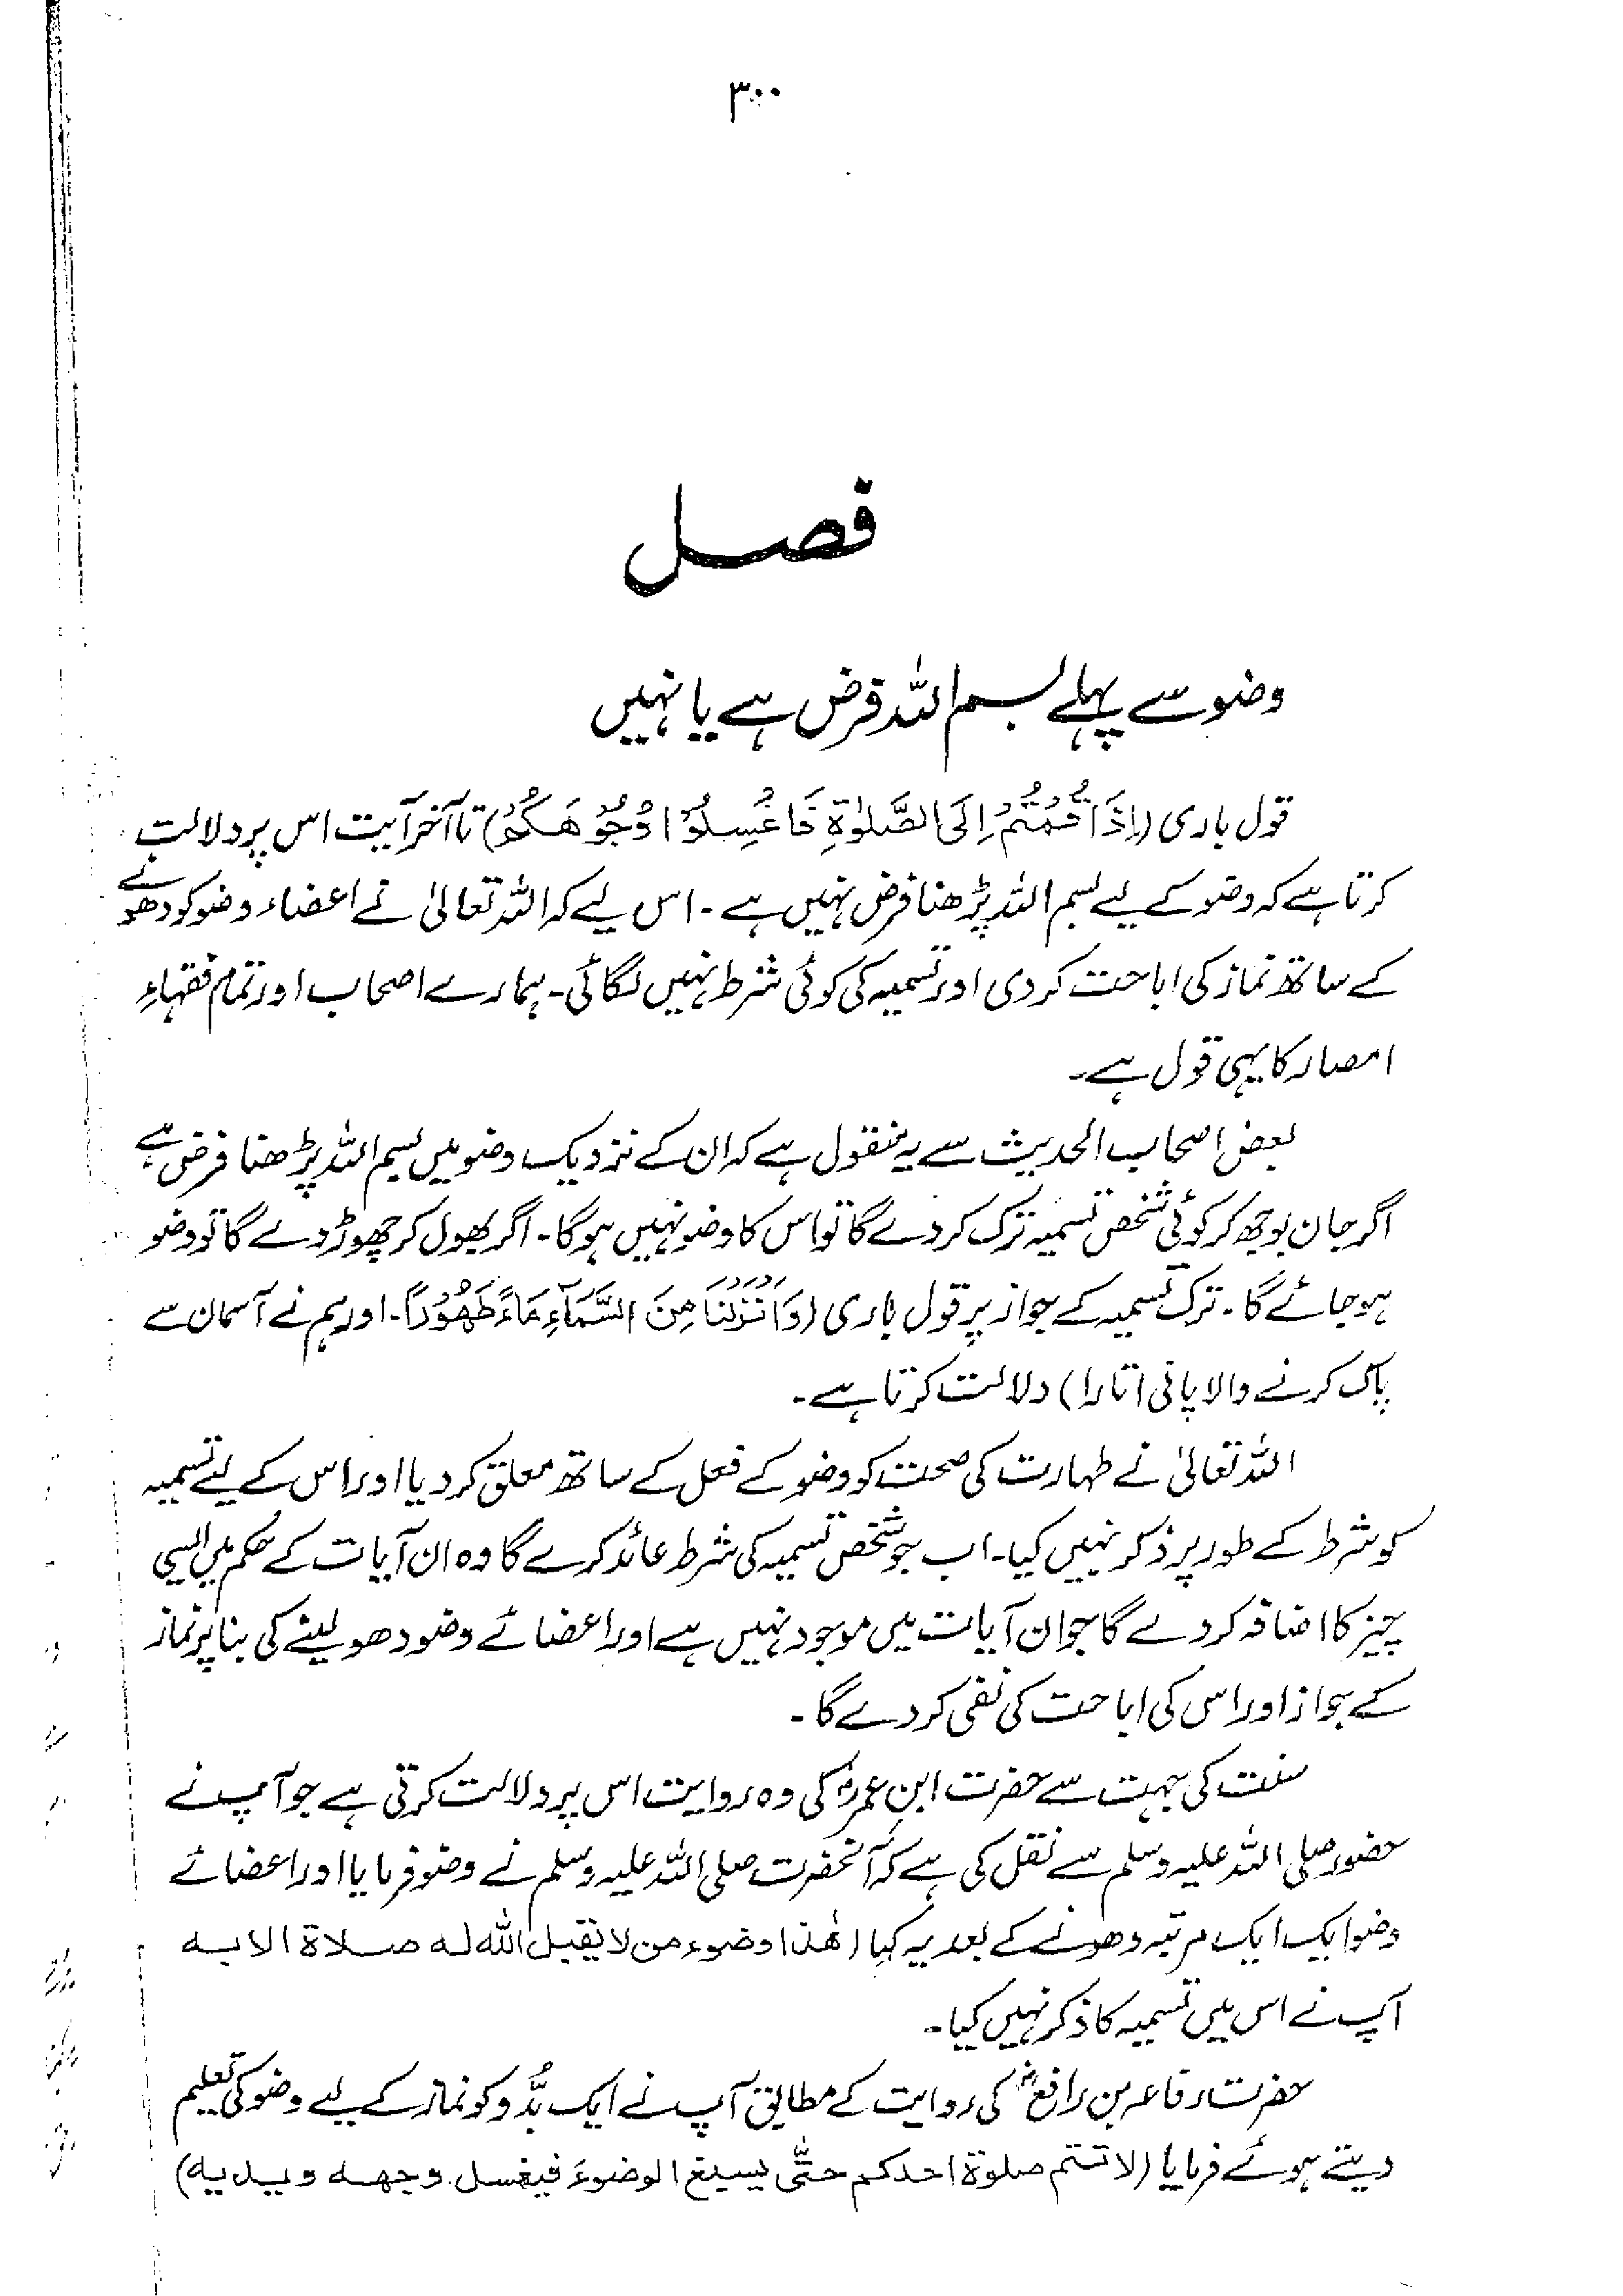 ۳۰۰
فصل
وضو سے پہلے بسم اللہ فرض ہے یا نہیں
قول باری (اِذَا قُمْتُمْ اِلَی الصَّلٰوةِ فَاغْسِلُوْا وُجُوْهَكُمْ) تا آخر آیت اس پر دلالت
کرتا ہے کہ وضو کے لیے بسم اللہ پڑھنا فرض نہیں ہے۔ اس لیے کہ اللہ تعالیٰ نے اعضاء وضو کو دھونے
کے ساتھ نماز کی اباحت کر دی اور تسمیہ کی کوئی شرط نہیں لگائی۔ ہمارے اصحاب اور تمام فقہاءِ
امصار کا یہی قول ہے۔
بعض اصحاب الحدیث سے یہ منقول ہے کہ ان کے نزدیک وضو میں بسم اللہ پڑھنا فرض ہے
اگر جان بوجھ کر کوئی شخص تسمیہ ترک کر دے گا تو اس کا وضو نہیں ہو گا۔ اگر بھول کر چھوڑ دے گا تو وضو
ہو جائے گا۔ ترک تسمیہ کے جواز پر قول باری (وَاَنْزَلْنَا مِنَ السَّمَآءِ مَاءً طَهُوْرًا۔ اور ہم نے آسمان سے
پاک کرنے والا پانی اتارا) دلالت کرتا ہے۔
اللہ تعالیٰ نے طہارت کی صحت کو وضو کے فعل کے ساتھ معلق کر دیا اور اس کے لیے تسمیہ
کو شرط کے طور پر ذکر نہیں کیا۔ اب جو شخص تسمیہ کی شرط عائد کرے گا وہ ان آیات کے حکم میں ایسی
چیز کا اضافہ کر دے گا جو ان آیات میں موجود نہیں ہے اور اعضائے وضو دھو لینے کی بنا پر نماز
کے جواز اور اس کی اباحت کی نفی کر دے گا۔
سنت کی جہت سے حضرت ابن عمرؓ کی وہ روایت اس پر دلالت کرتی ہے جو آپ نے
حضور صلی اللہ علیہ وسلم سے نقل کی ہے کہ آنحضرت صلی اللہ علیہ وسلم نے وضو فرمایا اور اعضائے
وضو ایک ایک مرتبہ دھونے کے بعد یہ کہا (هٰذا وضوء من لا يقبل الله له صلاة الا به
آپ نے اس میں تسمیہ کا ذکر نہیں کیا۔
حضرت رفاعہ بن رافعؓ کی روایت کے مطابق آپ نے ایک بدّو کو نماز کے لیے وضو کی تعلیم
دیتے ہوئے فرمایا (لا تتم صلوة احدكم حتّٰى يسبغ الوضوءَ فيغسل وجهه ويديه)